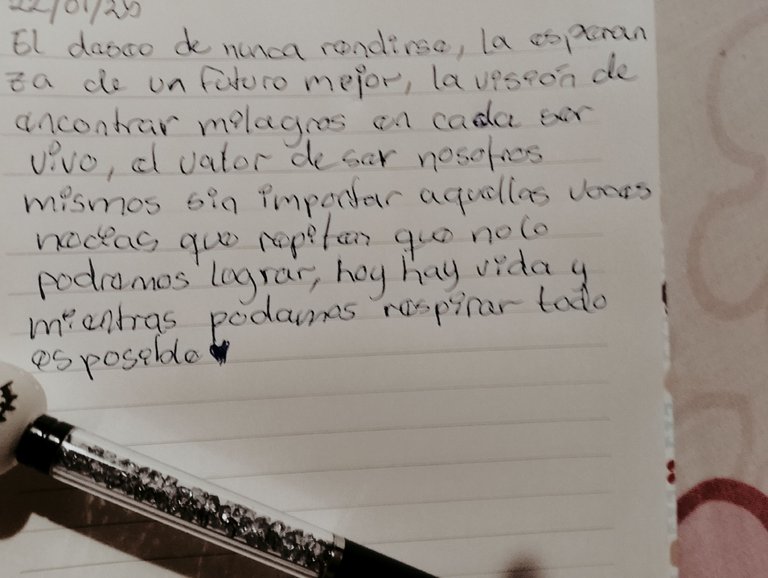 22/01/25
El daseo de nunca rendirse, la esperan
za de un futuro mejor, la vision de
encontrar milagros en cada ser
vivo, el valor de ser nosotros
mismos sin importar aquellas voces
necias que repiten que no lo
podremos lograr, hoy hay vida y
mientras podamos respirar todo
es posible